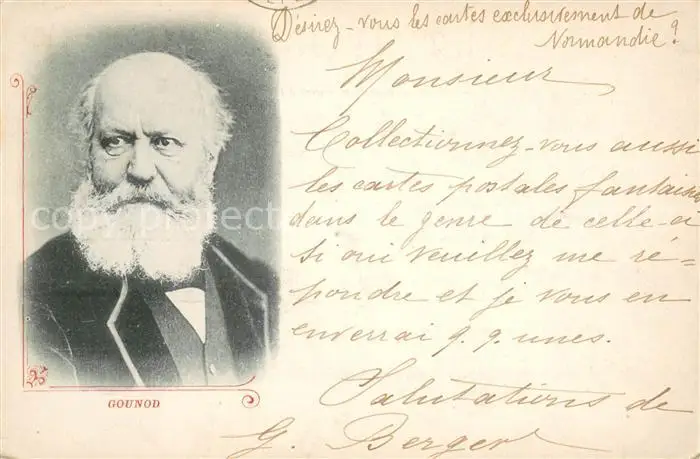 Désirez-vous les cartes exclusivement de
Normandie?
Monsieur
Collectionnez-vous aussi
les cartes postales fantaisie
dans le genre de celle-ci
si oui veuillez me ré=
pondre et je vous en
enverrai q. q. unes.
Salutations de
G. Berger
GOUNOD
copy protect